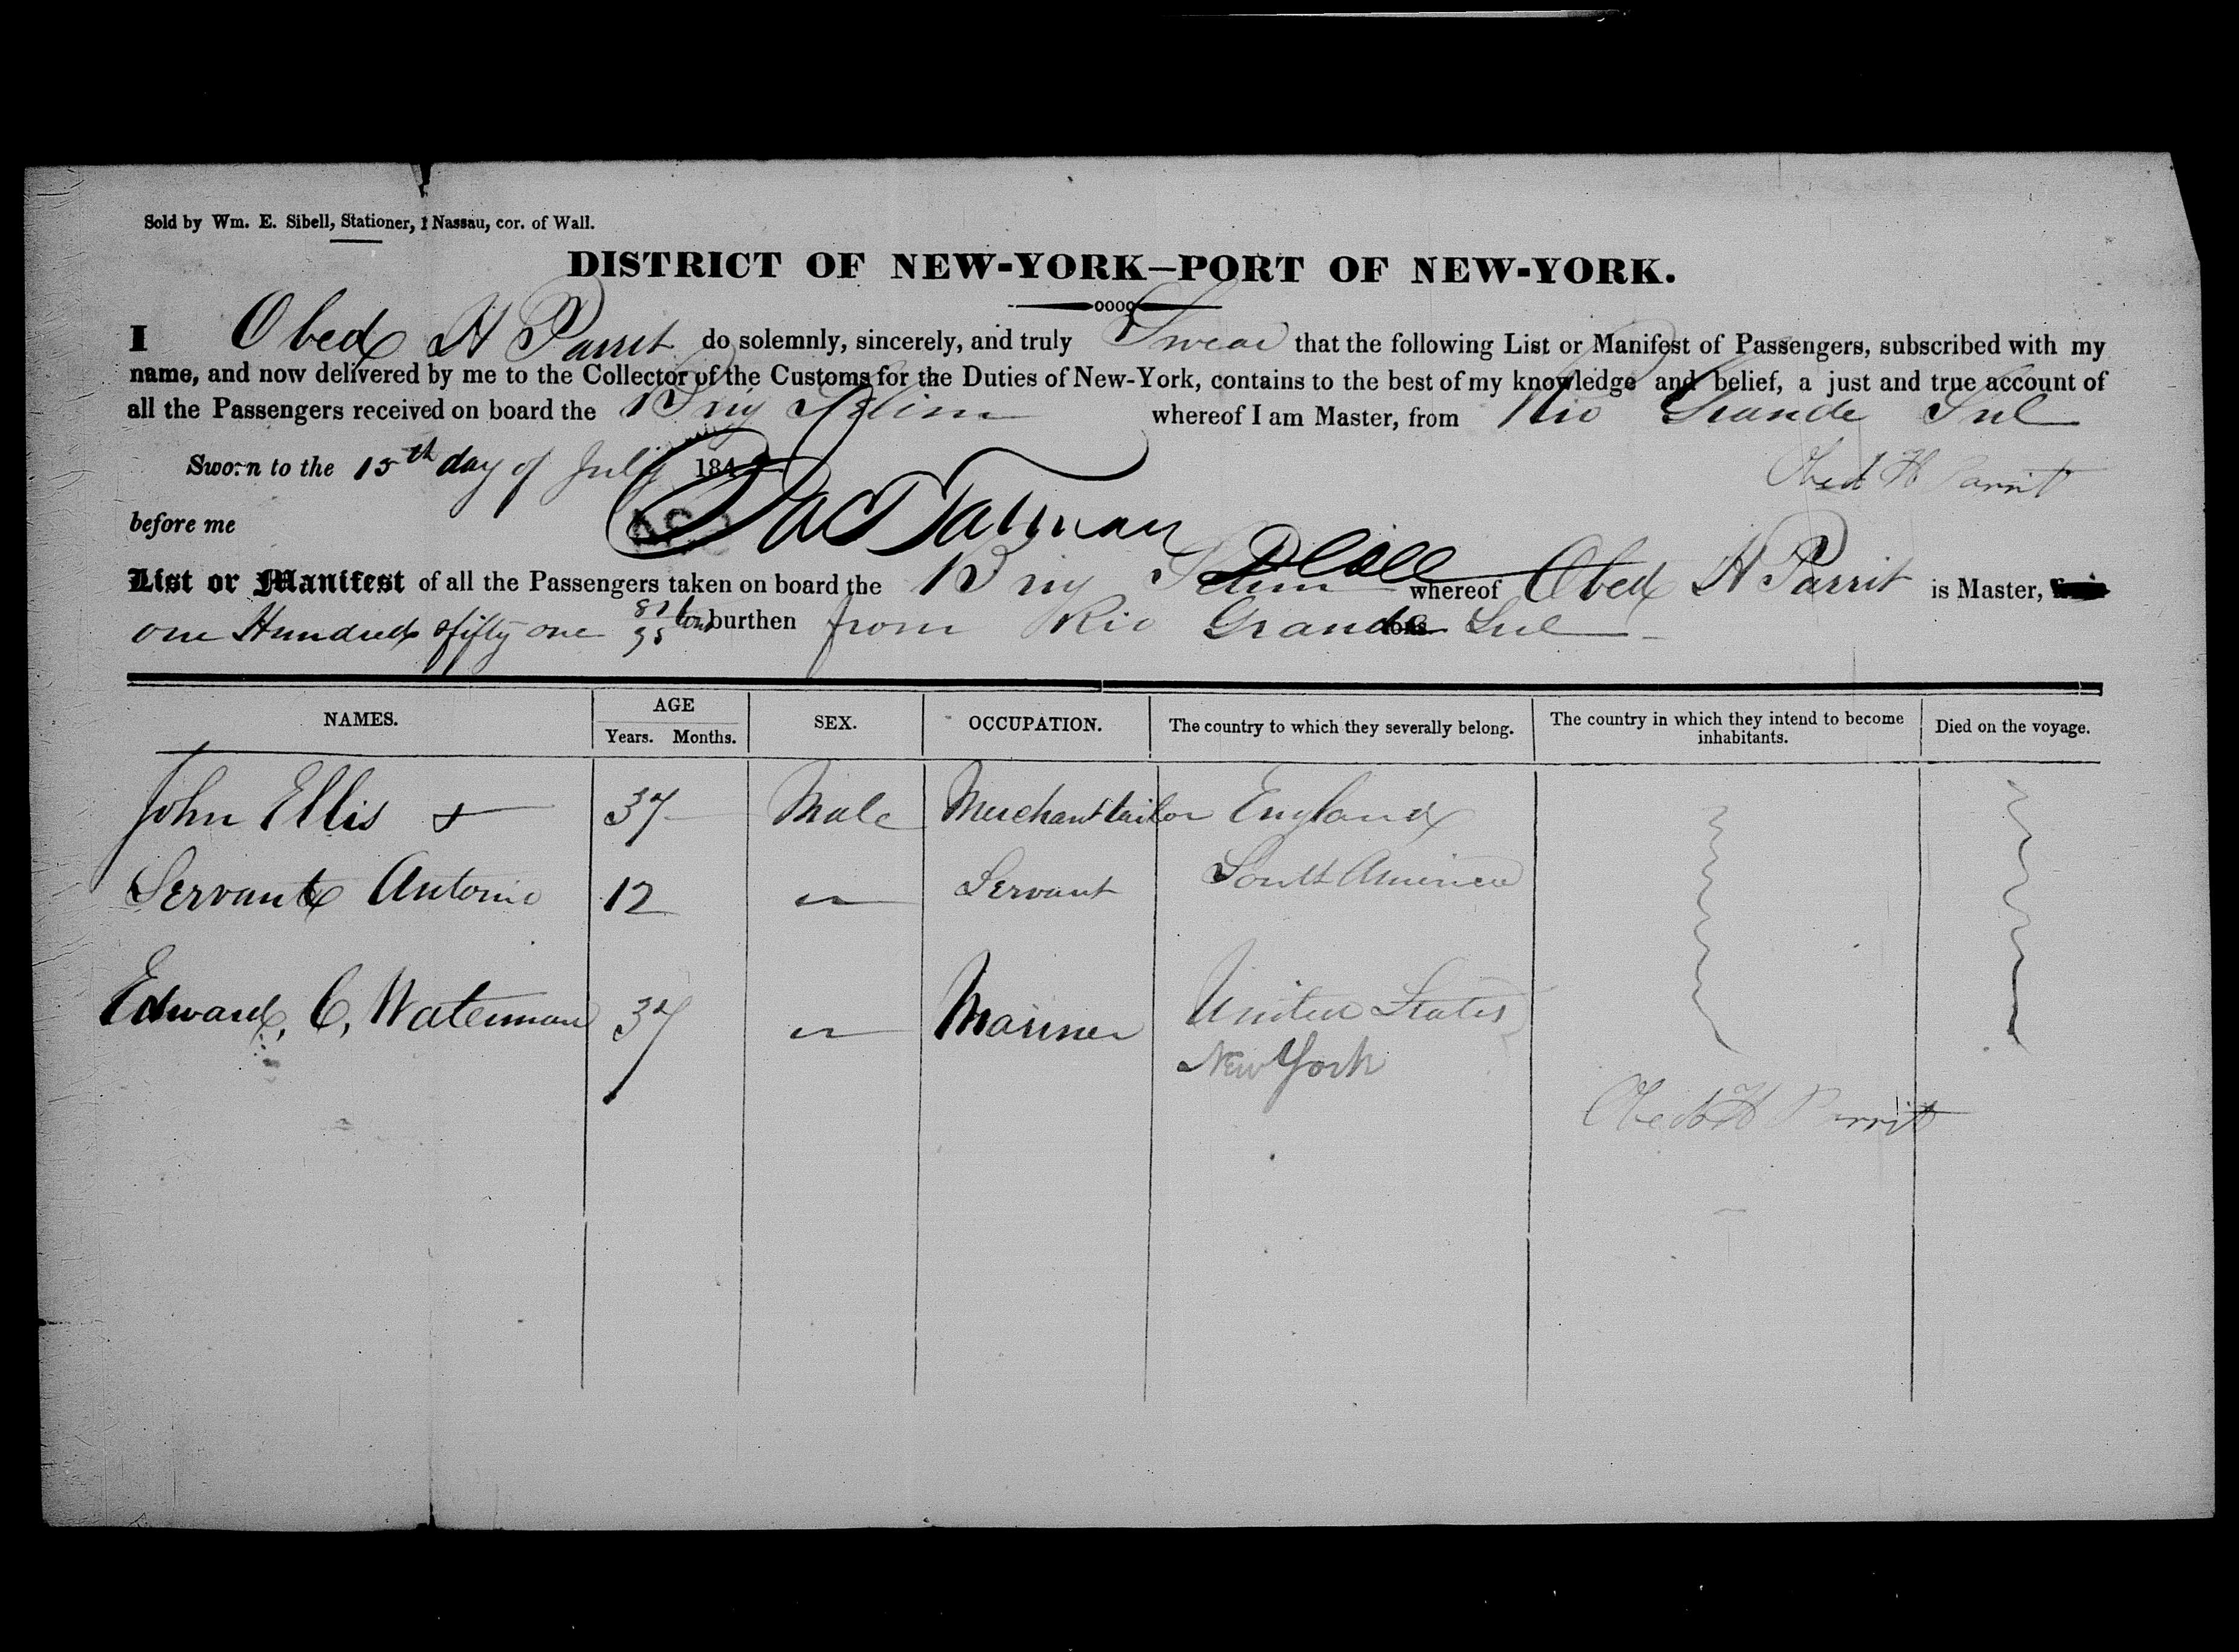 Sold by Wm. E. Sibell, Stationer, 1 Nassau, cor. of Wall.
DISTRICT OF NEW-YORK—PORT OF NEW-YORK.
I Obed H Parrit do solemnly, sincerely, and truly Swear that the following List or Manifest of Passengers, subscribed with my
name, and now delivered by me to the Collector of the Customs for the Duties of New-York, contains to the best of my knowledge and belief, a just and true account of
all the Passengers received on board the Brig whereof I am Master, from Rio Grande Sul
Sworn to the 15th day of July 184
Obed H Parrit
before me
List or Manifest of all the Passengers taken on board the Brig whereof Obed H Parrit is Master,
one Hundred & fifty one tons burthen from Rio Grande Sul
NAMES. AGE SEX. OCCUPATION. The country to which they severally belong. The country in which they intend to become inhabitants. Died on the voyage.
Years. Months.
John Ellis + 37 Male Merchant tailor England
Servant Antonio 12 " Servant South America
Edward, C, Waterman 37 " Mariner United States
New York
Obed H Parrit